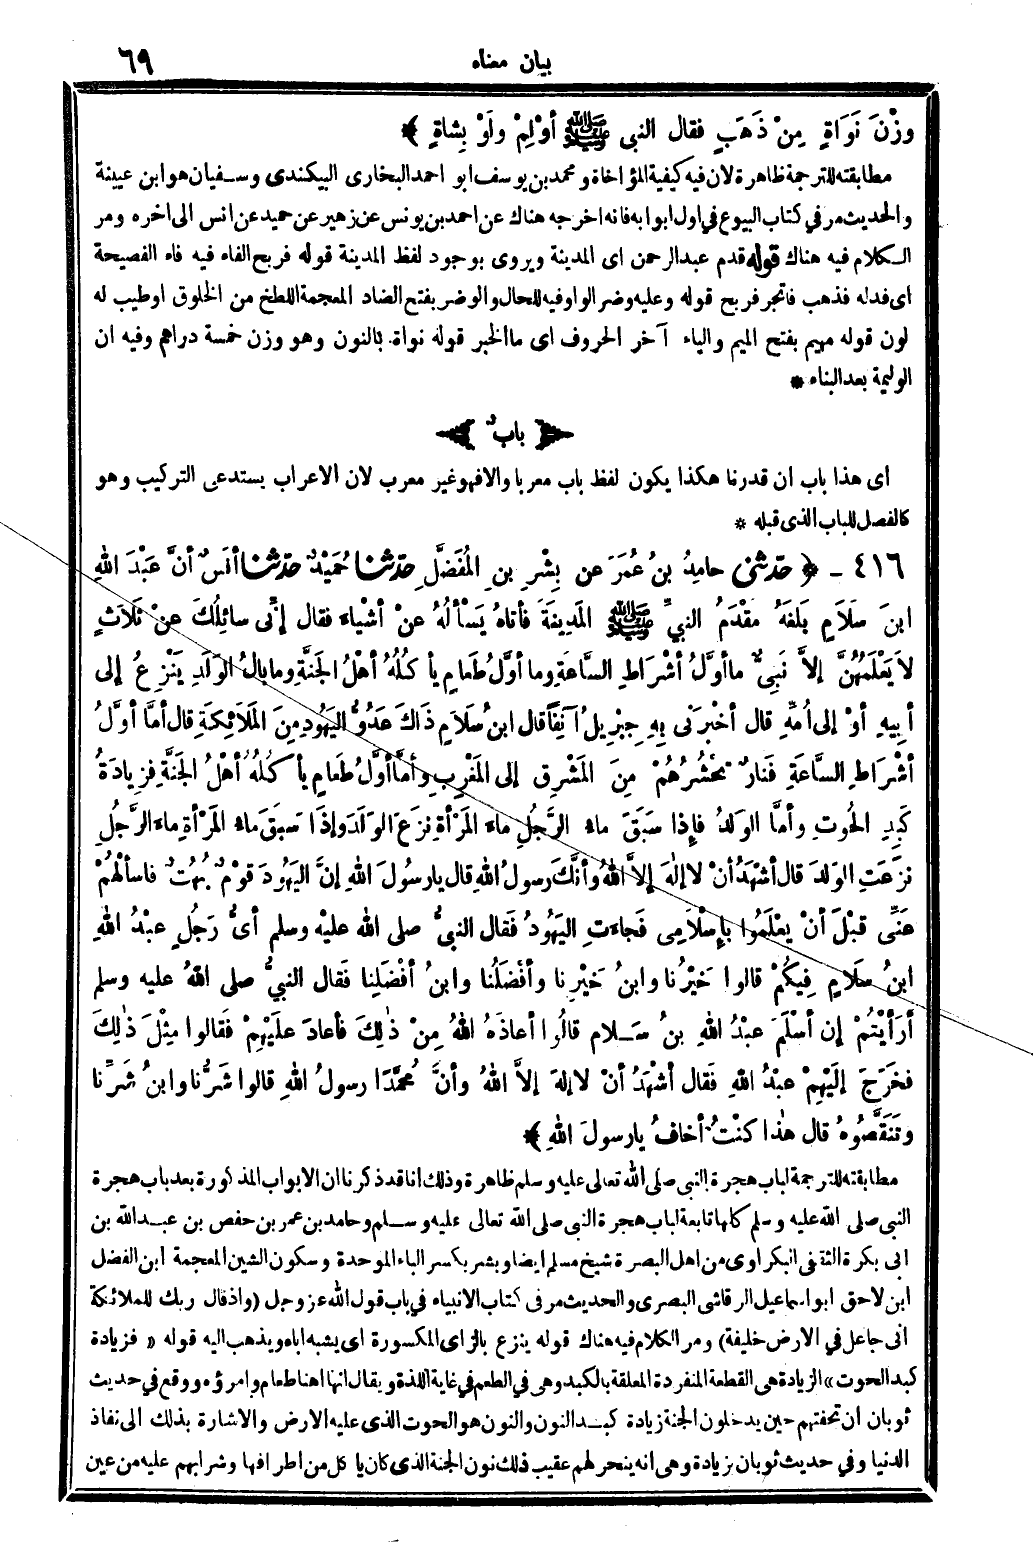 بيان معناه
٦٩
وزْنَ نَوَاةٍ مِنْ ذَهَبٍ فقال النبي ﷺ أوْلِمْ ولَوْ بِشاةٍ ﴾
مطابقته للترجمة ظاهرة لان فيه كيفية المؤاخاة ومحمد بن يوسف ابو احمد البخارى البيكندى وسفيان هو ابن عيينة
والحديث مر في كتاب البيوع في اول ابوابه فانه اخرجه هناك عن احمد بن يونس عن زهير عن حميد عن انس الى اخره ومر
الكلام فيه هناك قوله قدم عبد الرحمن اى المدينة ويروى بوجود لفظ المدينة قوله فربح الفاء فيه فاء الفصيحة
اى فدله فذهب فاتجر فربح قوله وعليه وضر الواو فيه للحال والوضر بفتح الضاد المعجمة اللطخ من الخلوق او طيب له
لون قوله مهيم بفتح الميم والياء آخر الحروف اى ما الخبر قوله نواة بالنون وهو وزن خمسة دراهم وفيه ان
الوليمة بعد البناء *
باب
اى هذا باب ان قدرنا هكذا يكون لفظ باب معربا والا فهو غير معرب لان الاعراب يستدعى التركيب وهو
كالفصل للباب الذى قبله *
٤١٦ - ﴿ حدثنى حامِدُ بنُ عُمَرَ عن بِشْرِ بنِ المُفَضَّلِ حدثنا حُمَيْدٌ حدثنا أنَسٌ أنَّ عَبْدَ اللهِ
ابنَ سَلَامٍ بَلَغَهُ مَقْدَمُ النبيِّ ﷺ المَدِينَةَ فأتاهُ يَسْألُهُ عنْ أشْياءَ فقال إنِّى سائِلُكَ عنْ ثَلَاثٍ
لا يَعْلَمُهُنَّ إلاَّ نَبِىٌّ ما أوَّلُ أشْرَاطِ السَّاعَةِ وما أوَّلُ طَعامٍ يأكُلُهُ أهْلُ الجَنَّةِ وما بالُ الوَلَدِ يَنْزِعُ إلى
أبِيهِ أوْ إلى أُمِّهِ قال أخْبَرَنى بِهِ جِبْرِيلُ آنِفاً قال ابنُ سَلَامٍ ذَاكَ عَدُوُّ اليَهُودِ مِنَ المَلَائِكَةِ قال أمَّا أوَّلُ
أشْرَاطِ السَّاعَةِ فَنارٌ تَحْشُرُهُمْ مِنَ المَشْرِقِ إلى المَغْرِبِ وأمَّا أوَّلُ طَعامٍ يأكُلُهُ أهْلُ الجَنَّةِ فَزِيادَةُ
كَبِدِ الحُوتِ وأمَّا الوَلَدُ فإذَا سَبَقَ ماءُ الرَّجُلِ ماءَ المَرْأةِ نَزَعَ الوَلَدَ وإذَا سَبَقَ ماءُ المَرْأةِ ماءَ الرَّجُلِ
نَزَعَتِ الوَلَدَ قال أشْهَدُ أنْ لا إلٰهَ إلاَّ اللهُ وأنَّكَ رسولُ اللهِ قال يا رسُولَ اللهِ إنَّ اليَهُودَ قَوْمٌ بُهُتٌ فاسألْهُمْ
عَنِّى قَبْلَ أنْ يَعْلَمُوا بإِسْلَامِى فَجاءَتِ اليَهُودُ فَقال النبيُّ صلى الله عليْه وسلم أىُّ رَجُلٍ عبْدُ اللهِ
ابنُ سَلَامٍ فِيكُمْ قالوا خَيْرُنا وابنُ خَيْرِنا وأفْضَلُنا وابنُ أفْضَلِنا فَقال النبيُّ صلى اللهُ عليه وسلم
أرَأيْتُمْ إن أسْلَمَ عبْدُ اللهِ بنُ سَلام قالُوا أعاذَهُ اللهُ مِنْ ذٰلِكَ فأعادَ علَيْهِمْ فَقالوا مِثْلَ ذٰلِكَ
فخَرَجَ إلَيْهِمْ عبْدُ اللهِ فَقال أشْهَدُ أنْ لا إلهَ إلاَّ اللهُ وأنَّ مُحَمَّدًا رسولُ اللهِ قالوا شَرُّنا وابنُ شَرِّنا
وتَنَقَّصُوهُ قال هٰذا كنْتُ أخافُ يا رسولَ اللهِ ﴾
مطابقته للترجمة لباب هجرة النبى صلى الله تعالى عليه وسلم ظاهرة وذلك انا قد ذكرنا ان الابواب المذكورة بعد باب هجرة
النبى صلى الله عليه وسلم كلها تابعة لباب هجرة النبى صلى الله تعالى عليه وسلم وحامد بن عمر بن حفص بن عبد الله بن
ابى بكرة الثقفى البكراوى من اهل البصرة شيخ مسلم ايضا وبشر بكسر الباء الموحدة وسكون الشين المعجمة ابن الفضل
ابن لاحق ابو اسماعيل الرقاشى البصرى والحديث مر فى كتاب الانبياء في باب قول الله عز وجل (واذ قال ربك للملائكة
انى جاعل في الارض خليفة) ومر الكلام فيه هناك قوله ينزع بالزاى المكسورة اى يشبه اباه ويذهب اليه قوله «فزيادة
كبد الحوت» الزيادة هى القطعة المنفردة المعلقة بالكبد وهى في الطعم في غاية اللذة ويقال انها اهنا طعام وامرؤه ووقع في حديث
ثوبان ان تحفتهم حين يدخلون الجنة زيادة كبد النون والنون هو الحوت الذى عليه الارض والاشارة بذلك الى نفاذ
الدنيا وفي حديث ثوبان بزيادة وهى انه ينحر لهم عقيب ذلك نون الجنة الذى كان يا كل من اطرافها وشرابهم عليه من عين